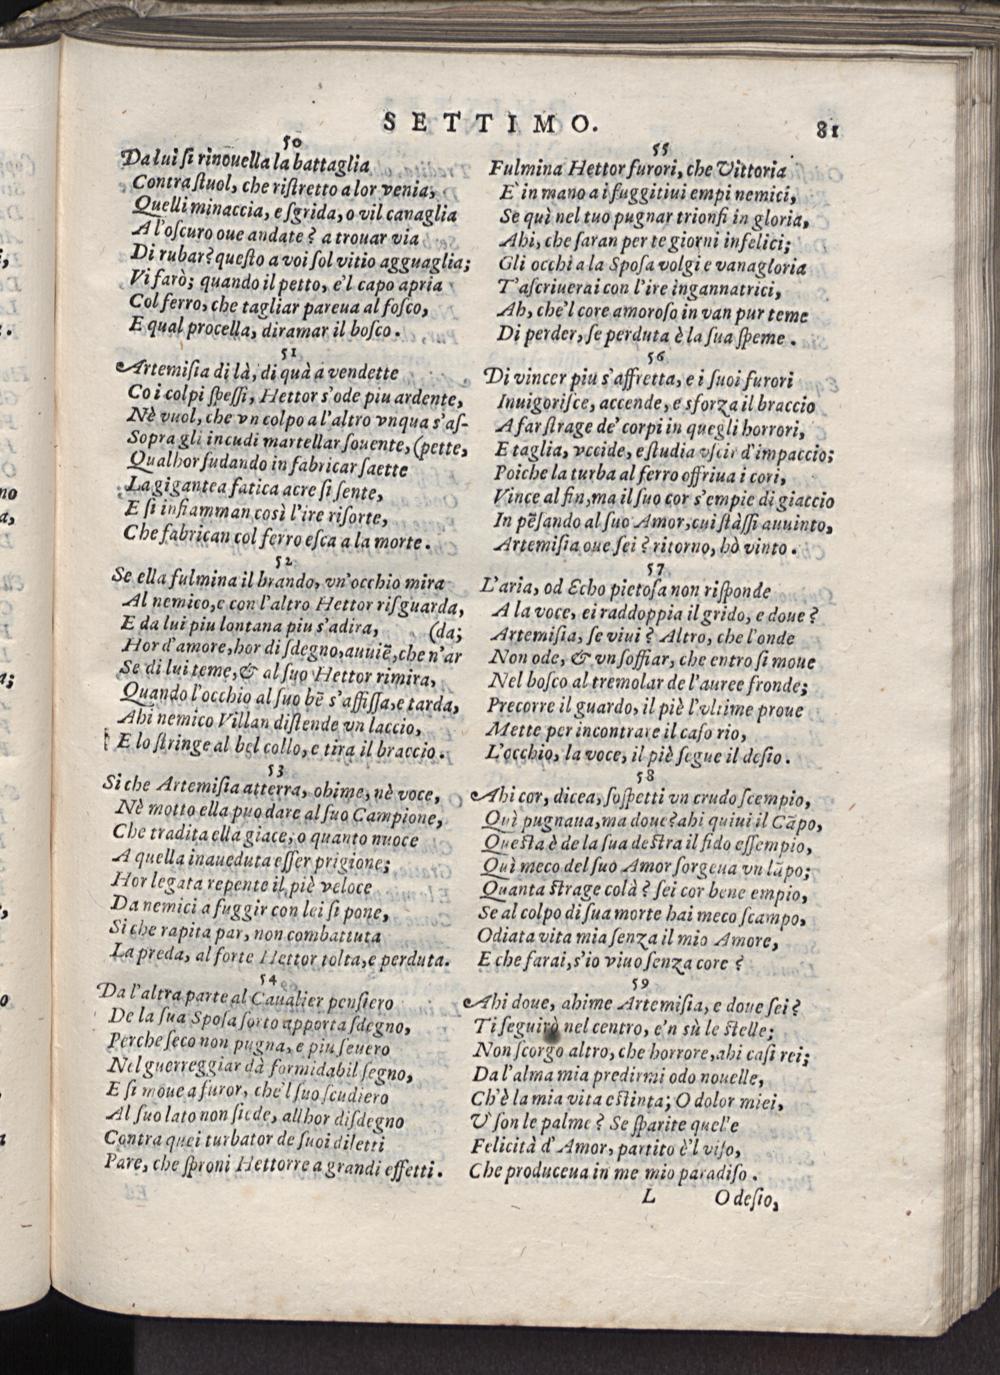 SETTIMO. 81
50
Da lui si rinouella la battaglia
Contra stuol, che ristretto a lor venia,
Quelli minaccia, e sgrida, o vil canaglia
A l'oscuro oue andate? a trouar via
Di rubar? questo a voi sol vitio agguaglia;
Vi farò; quando il petto, e'l capo apria
Col ferro, che tagliar pareua al fosco,
E qual procella, diramar il bosco.
51
Artemisia di là, di quà a vendette
Co i colpi spessi, Hettor s'ode piu ardente,
Nè vuol, che vn colpo a l'altro vnqua s'as-
Sopra gli incudi martellar souente, (pette,
Qualhor sudando in fabricar saette
La gigantea fatica acre si sente,
E si infiamman così l'ire risorte,
Che fabrican col ferro esca a la morte.
52
Se ella fulmina il brando, vn'occhio mira
Al nemico, e con l'altro Hettor risguarda,
E da lui piu lontana piu s'adira, (da;
Hor d'amore, hor di sdegno, auuiẽ, che n'ar
Se di lui teme, & al suo Hettor rimira,
Quando l'occhio al suo bẽ s'affissa, e tarda,
Ahi nemico Villan distende vn laccio,
E lo stringe al bel collo, e tira il braccio.
53
Si che Artemisia atterra, ohime, nè voce,
Nè motto ella puo dare al suo Campione,
Che tradita ella giace; o quanto nuoce
A quella inaueduta esser prigione;
Hor legata repente il piè veloce
Da nemici a fuggir con lei si pone,
Si che rapita par, non combattuta
La preda, al forte Hettor tolta, e perduta.
54
Da l'altra parte al Caualier pensiero
De la sua Sposa sorto apporta sdegno,
Perche seco non pugna, e piu seuero
Nel guerreggiar dà formidabil segno,
E si moue a furor, che'l suo scudiero
Al suo lato non siede, allhor disdegno
Contra quei turbator de suoi diletti
Pare, che sproni Hettorre a grandi effetti.
55
Fulmina Hettor furori, che Vittoria
E' in mano a i fuggitiui empi nemici,
Se quì nel tuo pugnar trionfi in gloria,
Ahi, che saran per te giorni infelici;
Gli occhi a la Sposa volgi e vanagloria
T'ascriuerai con l'ire ingannatrici,
Ah, che'l core amoroso in van pur teme
Di perder, se perduta è la sua speme.
56
Di vincer piu s'affretta, e i suoi furori
Inuigorisce, accende, e sforza il braccio
A far strage de' corpi in quegli horrori,
E taglia, vccide, e studia vscir d'impaccio;
Poiche la turba al ferro offriua i cori,
Vince al fin, ma il suo cor s'empie di giaccio
In pẽsando al suo Amor, cui stàssi auuinto,
Artemisia oue sei? ritorno, hò vinto.
57
L'aria, od Echo pietosa non risponde
A la voce, ei raddoppia il grido, e doue?
Artemisia, se viui? Altro, che l'onde
Non ode, & vn soffiar, che entro si moue
Nel bosco al tremolar de l'auree fronde;
Precorre il guardo, il piè l'vltime proue
Mette per incontrare il caso rio,
L'occhio, la voce, il piè segue il desio.
58
Ahi cor, dicea, sospetti vn crudo scempio,
Quì pugnaua, ma doue? ahi quiui il Cãpo,
Questa è de la sua destra il fido essempio,
Quì meco del suo Amor sorgeua vn lãpo;
Quanta strage colà? sei cor bene empio,
Se al colpo di sua morte hai meco scampo,
Odiata vita mia senza il mio Amore,
E che farai, s'io viuo senza core?
59
Ahi doue, ahime Artemisia, e doue sei?
Ti seguirò nel centro, e'n sù le stelle;
Non scorgo altro, che horrore, ahi casi rei;
Da l'alma mia predirmi odo nouelle,
Ch'è la mia vita estinta; O dolor miei,
V' son le palme? Se sparite quel'e
Felicità d'Amor, partito è'l viso,
Che produceua in me mio paradiso.
L O desio,